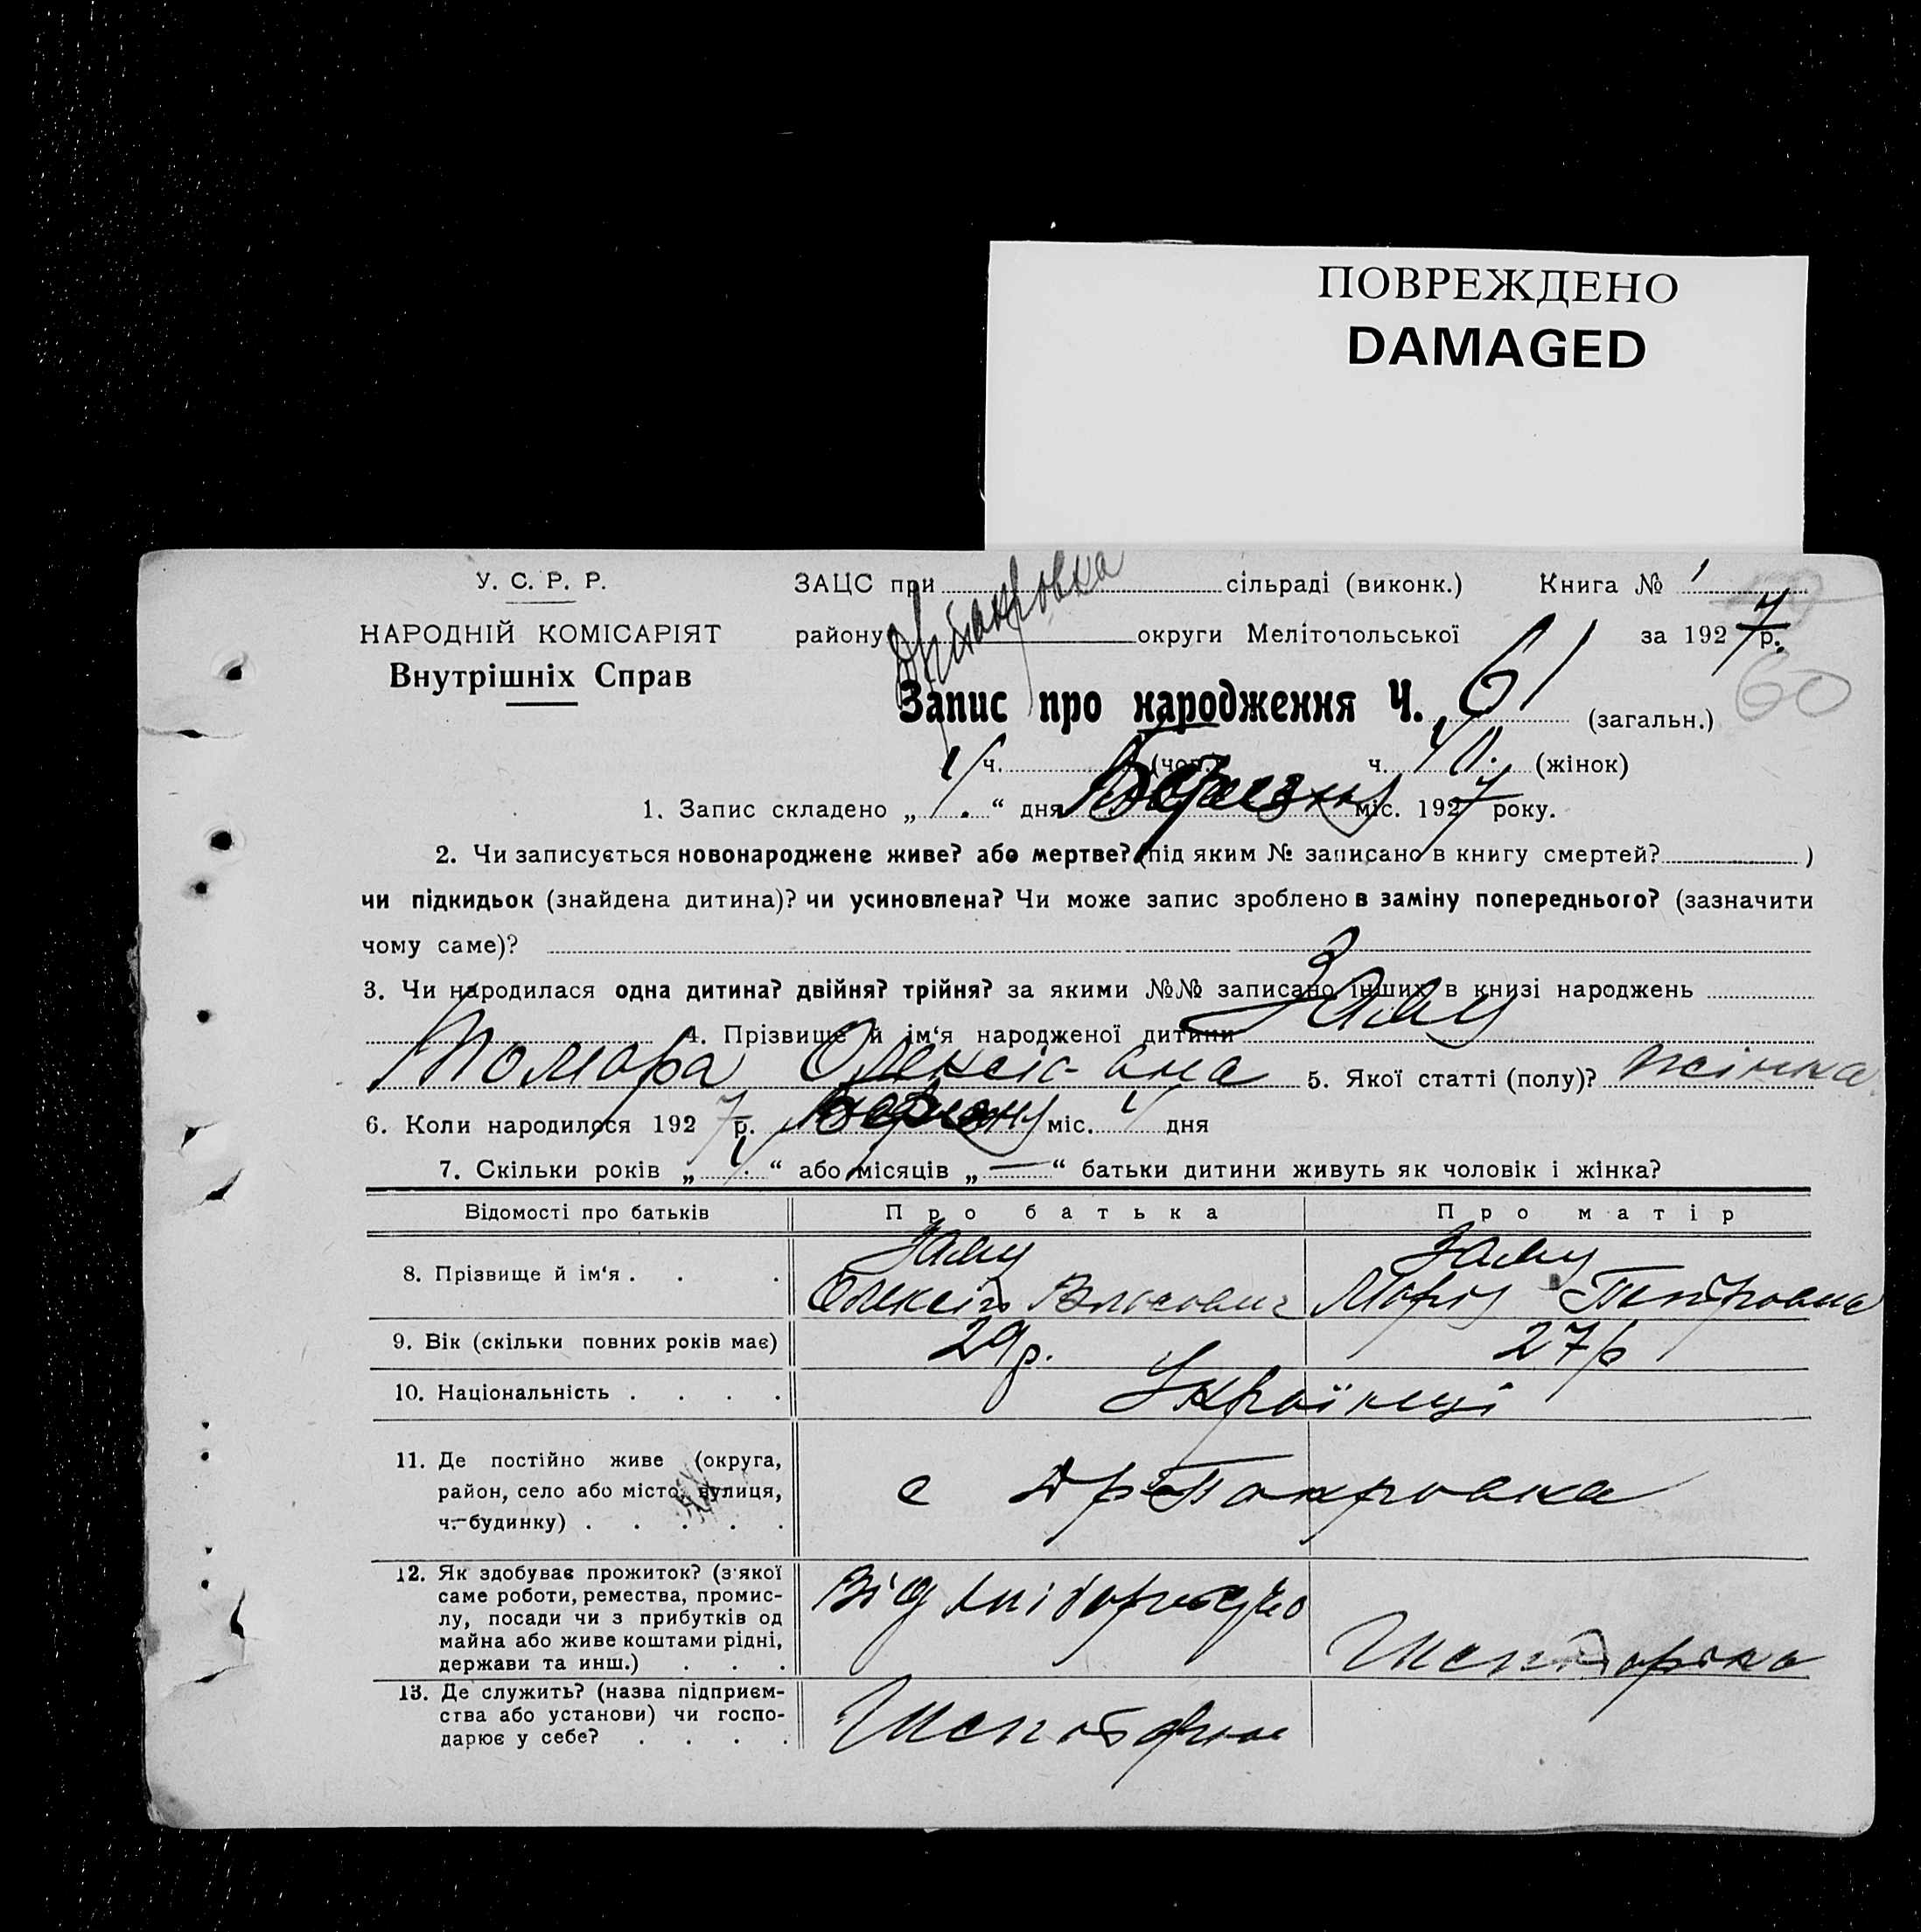 ПОВРЕЖДЕНО
DAMAGED
У. С. Р. Р.
НАРОДНІЙ КОМІСАРІЯТ
Внутрішніх Справ
ЗАЦС при сільраді (виконк.) Книга № 1
району округи Мелітопольської за 1927 р.
60
Запис про народження Ч. 61 (загальн.)
ч. (чол.) ч. (жінок)
1. Запис складено „ “ дня Березня міс. 1927 року.
2. Чи записується новонароджене живе? або мертве? (під яким № записано в книгу смертей? )
чи підкидьок (знайдена дитина)? чи усиновлена? Чи може запис зроблено в заміну попереднього? (зазначити
чому саме)?
3. Чи народилася одна дитина? двійня? трійня? за якими №№ записано інших в книзі народжень
4. Прізвище й ім‘я народженої дитини
Томара 5. Якої статті (полу)? жінка
6. Коли народилося 1927 р. Березня міс. дня
7. Скільки років „ “ або місяців „—“ батьки дитини живуть як чоловік і жінка?
Відомості про батьків Про батька Про матір
8. Прізвище й ім‘я . . . Олексій Власович
9. Вік (скільки повних років має) 29р. 27р
10. Національність . . . . Українці
11. Де постійно живе (округа,
район, село або місто, вулиця,
ч. будинку) . . . . . с Др Покровка
12. Як здобуває прожиток? (з'якої
саме роботи, ремества, промис-
лу, посади чи з прибутків од
майна або живе коштами рідні,
держави та инш.) . . . Від
13. Де служить? (назва підприєм-
ства або установи) чи госпо-
дарює у себе? . . . .